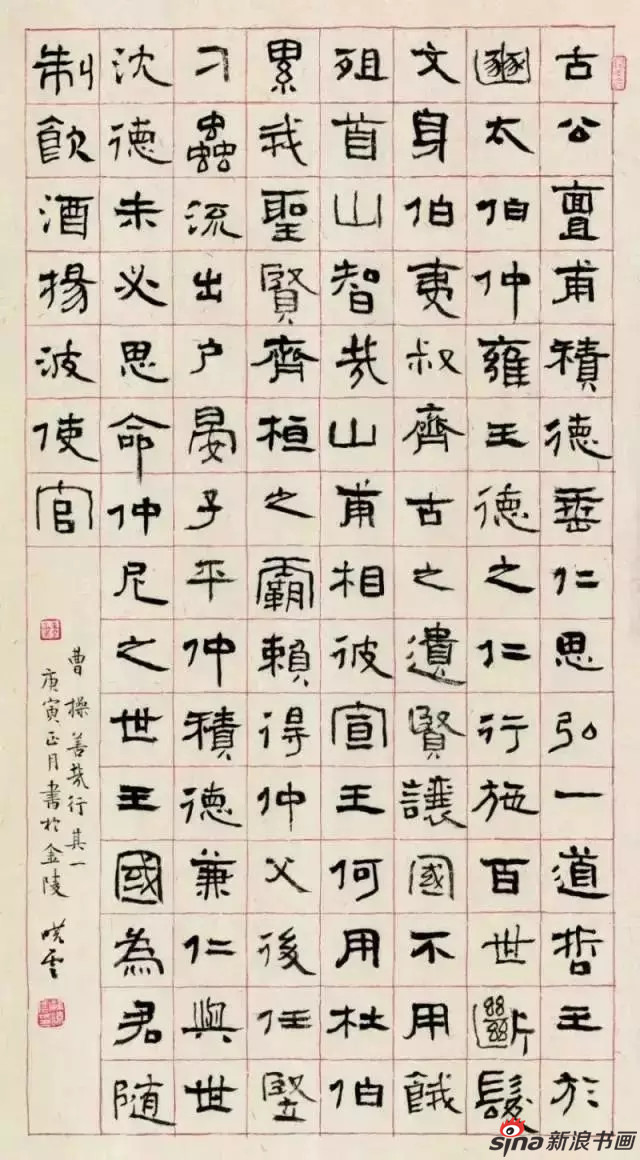 古公亶甫積德垂仁思弘一道哲王於
豳太伯仲雍王德之仁行施百世斷髮
文身伯夷叔齊古之遺賢讓國不用餓
殂首山智哉山甫相彼宣王何用杜伯
累我聖賢齊桓之霸賴得仲父後任豎
刁蟲流出户晏子平仲積德兼仁與世
沈德未必思命仲尼之世王國為君隨
制飲酒揚波使官
曹操善哉行其一
庚寅正月書於金陵
sina新浪书画